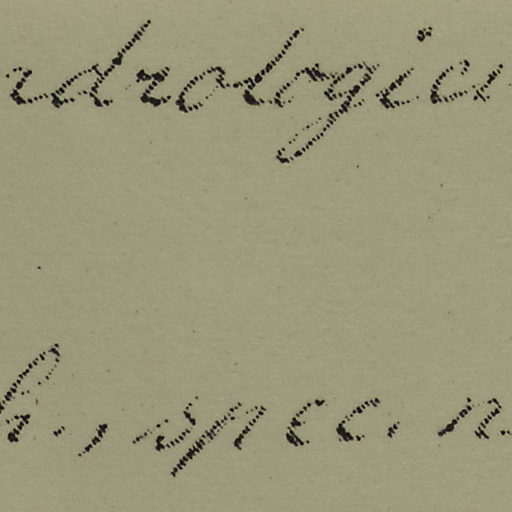 rdrologica
h., spec. n.